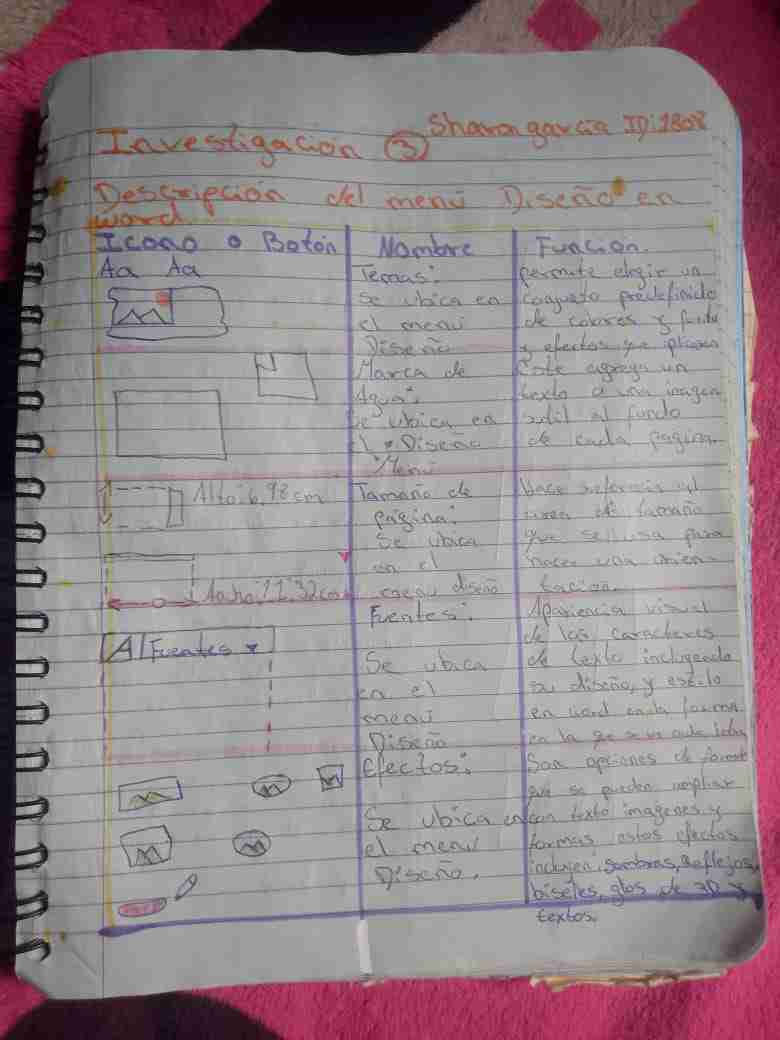 Sharon garcía ID:1808
Investigación ③
Descripción del menú Diseño en
word
Icono o Botón
Nombre
Función.
Aa Aa
Temas:
Se ubica en
el menú
Diseño
permite elegir un
conjunto predefinido
de colores y
y efectos que
Marca de
Agua:
Se ubica en
el Diseño
Menú
Este agrega un
texto o una imagen
sutil al fondo
de cada pagina.
Alto: 6,98 cm
Ancho: 11.32 cm
Tamaño de
pagina:
Se ubica
en el
diseño
hace referencia al
area de tamaño
que se usa para
hacer una orien
tación.
A Fuentes
Fuentes:
Se ubica
en el
menú
Diseño
Apariencia visual
de los caracteres
de texto incluyendo
su diseño, y estilo
en word en la forma
en la que se ve cada
Efectos:
Se ubica en
el menú
Diseño.
Son opciones de format
que se pueden ampliar
con texto imagenes y
formas estos efectos
incluyen, sombras, reflejos,
biseles, de 3D y
textos.